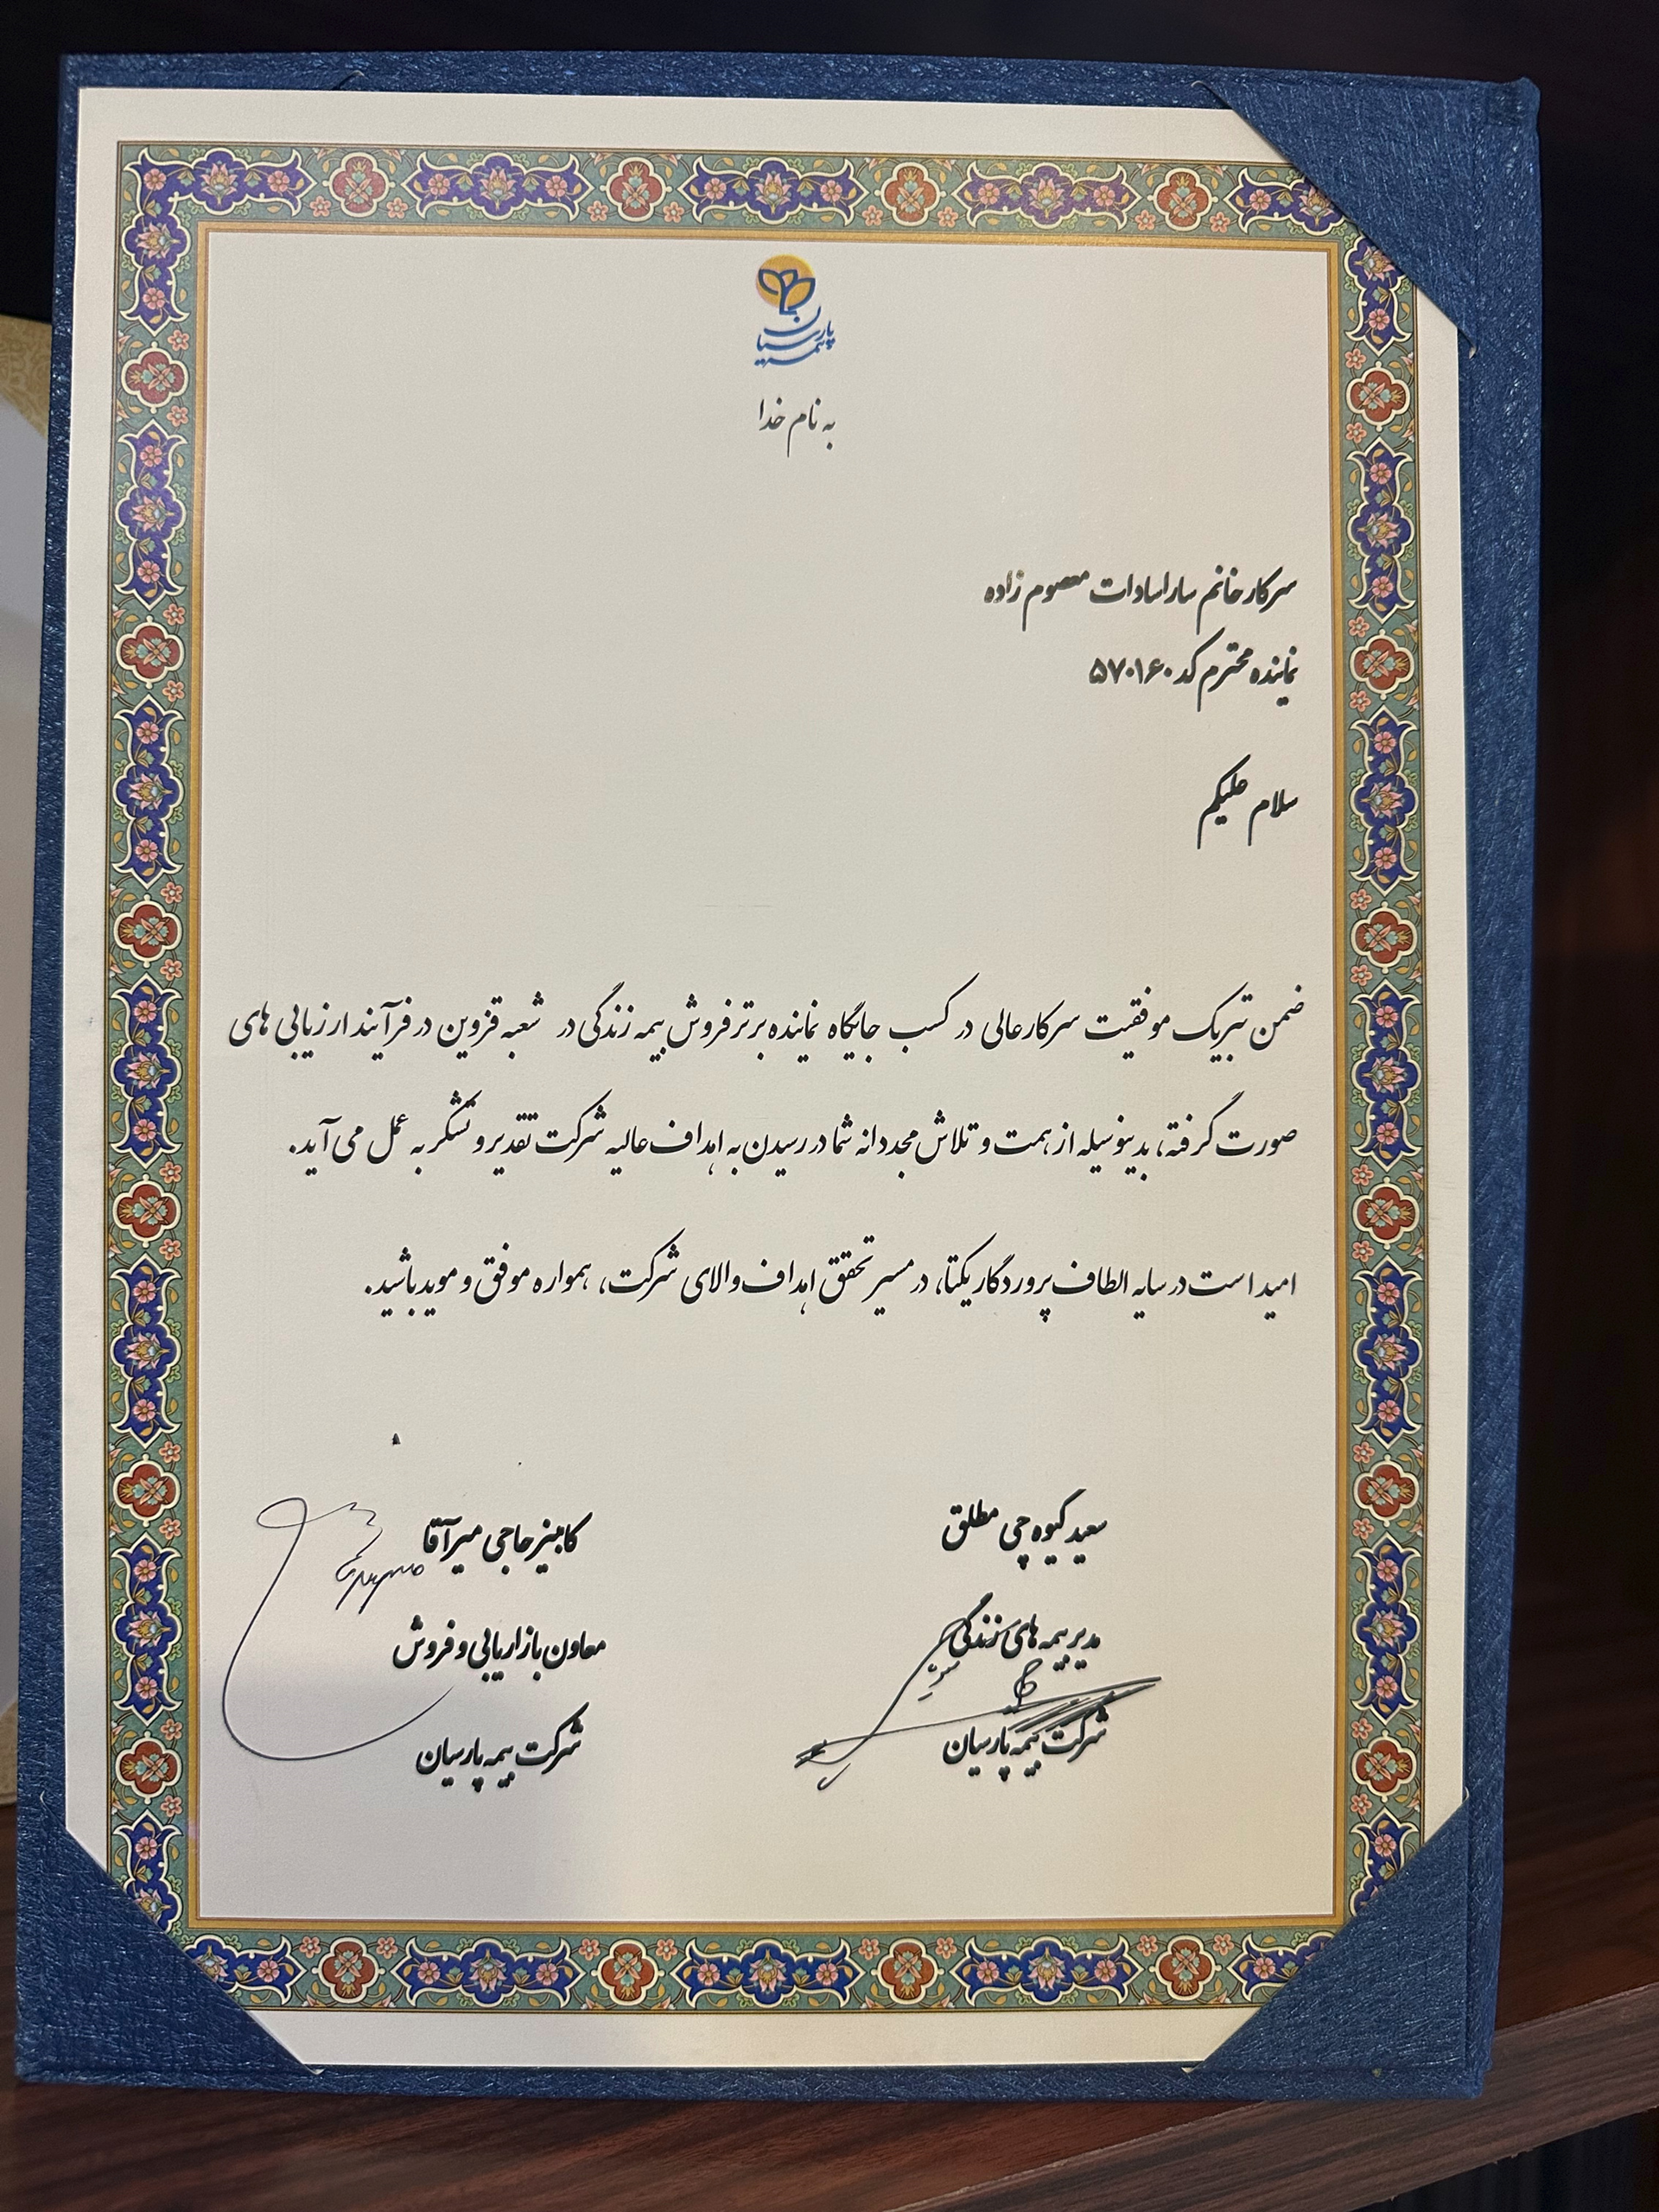 بیمه پارسیان
به نام خدا
سرکار خانم سارا سادات معصوم زاده
نماینده محترم کد ۵۷۰۱۶۰
سلام علیکم
ضمن تبریک موفقیت سرکار عالی در کسب جایگاه نماینده برتر فروش بیمه زندگی در شعبه قزوین در فرآیند ارزیابی های
صورت گرفته، بدینوسیله از همت و تلاش مجددانه شما در رسیدن به اهداف عالیه شرکت تقدیر و تشکر به عمل می آید.
امید است در سایه الطاف پروردگار یکتا، در مسیر تحقق اهداف والای شرکت، همواره موفق و موید باشید.
سعید گیوه چی مطلق
مدیر بیمه های زندگی
شرکت بیمه پارسیان
کامبیز حاجی میرآقا
معاون بازاریابی و فروش
شرکت بیمه پارسیان